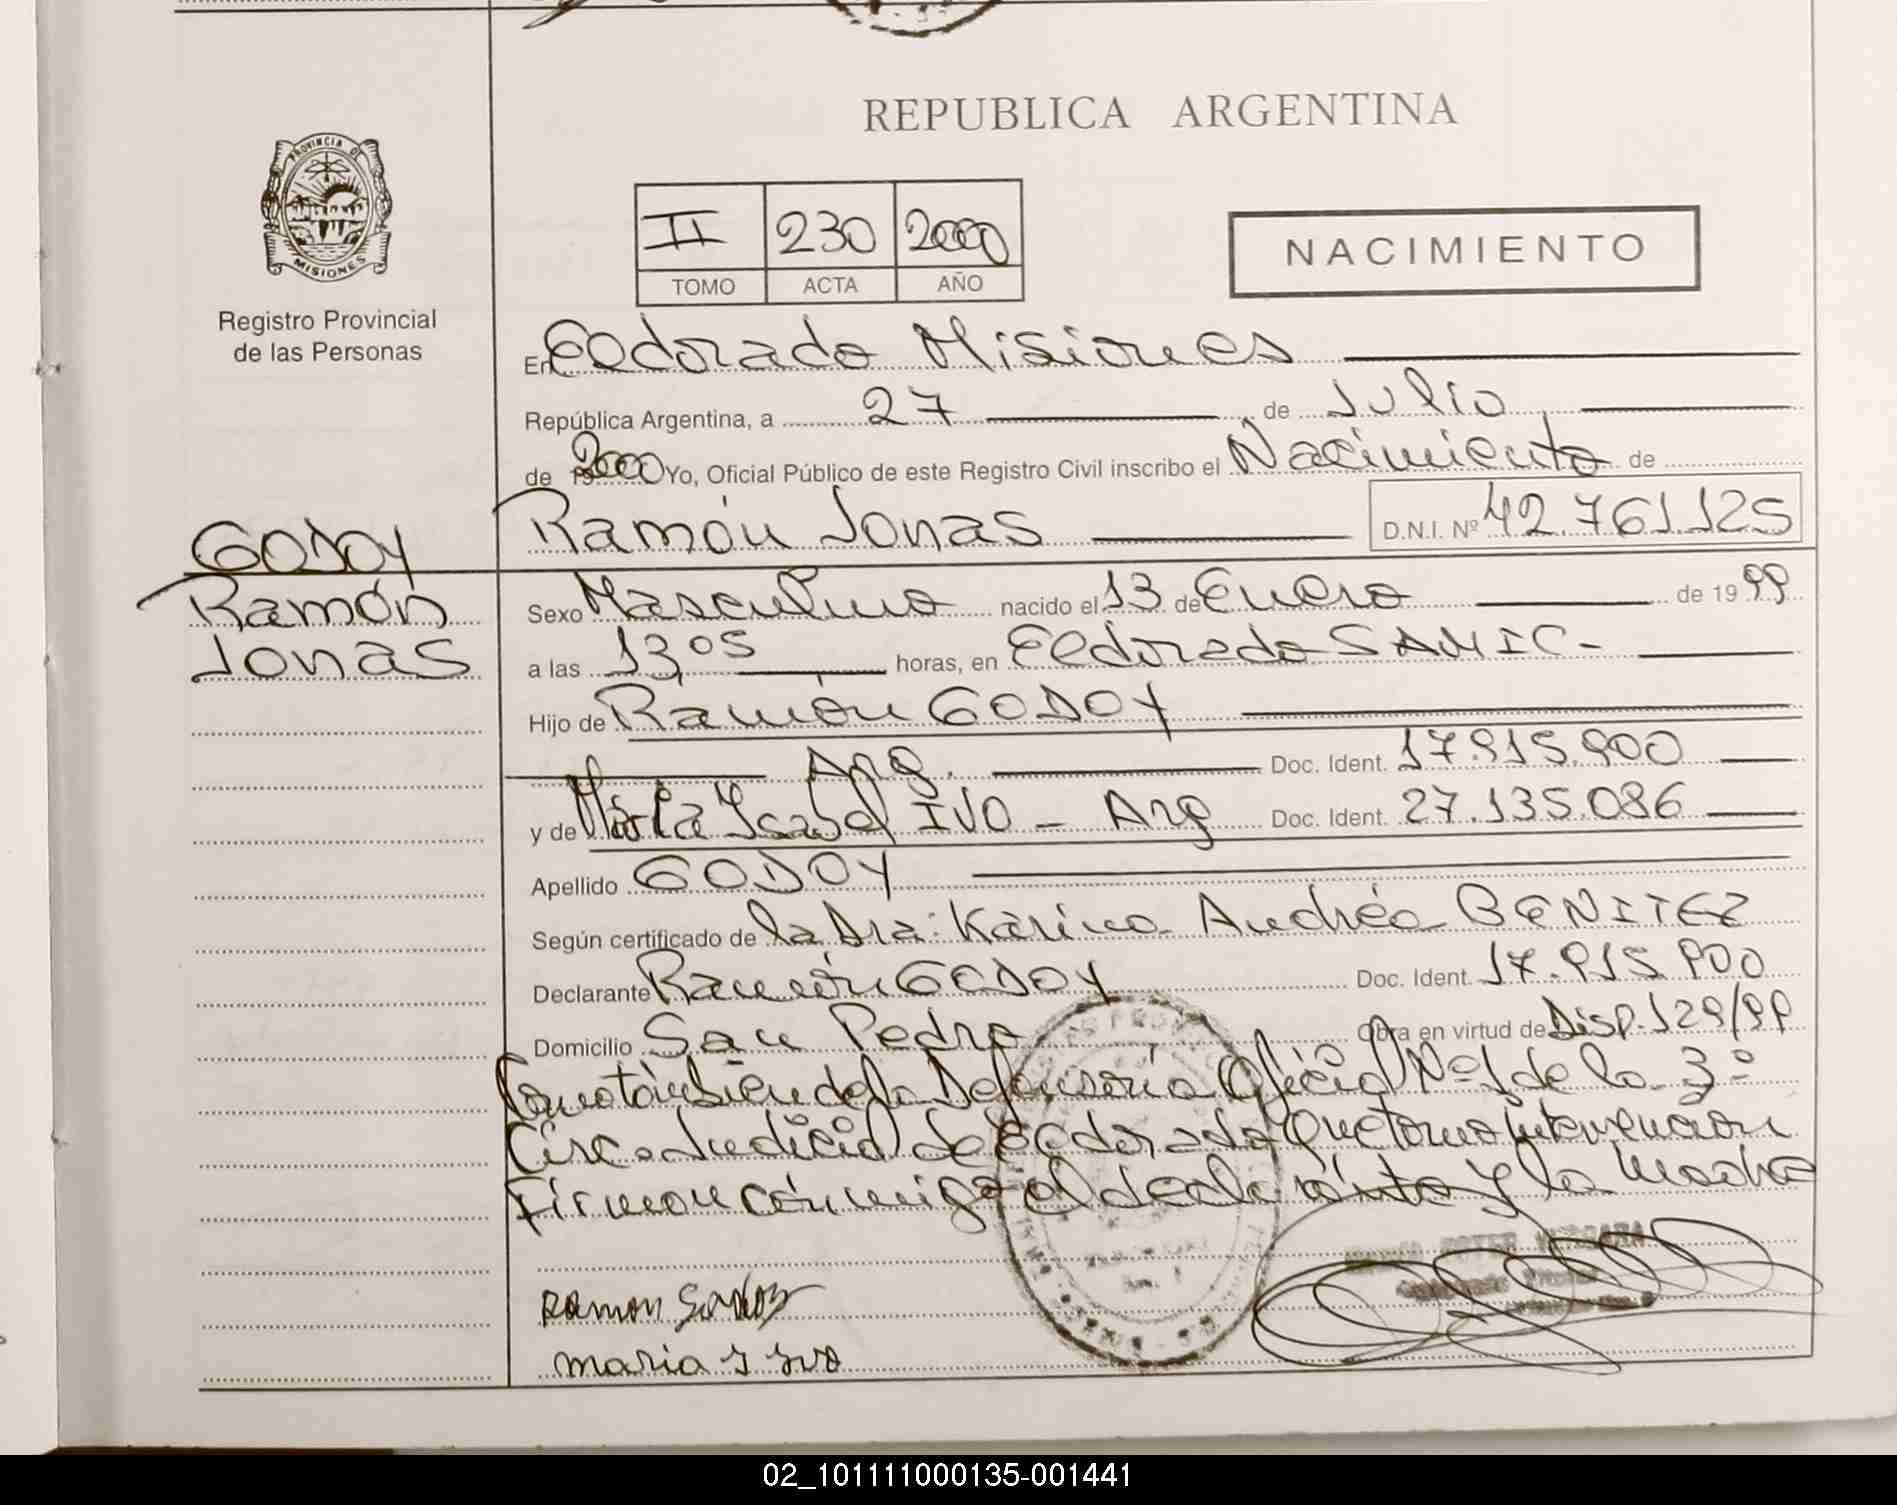 REPUBLICA ARGENTINA
PROVINCIA DE
MISIONES
Registro Provincial
de las Personas
II 230 2000
TOMO ACTA AÑO
NACIMIENTO
En Eldorado Misiones
República Argentina, a 27 de Julio
de 2000 Yo, Oficial Público de este Registro Civil inscribo el Nacimiento de
Ramón Jonas D.N.I. Nº 42.761.125
GODOY
Ramón
Jonas
Sexo Masculino nacido el 13 de Enero de 1999
a las 13,05 horas, en Eldorado SAMIC-
Hijo de Ramón GODOY
Arg. Doc. Ident. 17.915.900
y de María Isabel IVO - Arg Doc. Ident. 27.135.086
Apellido GODOY
Según certificado de la Dra: Karina Andréa BENITEZ
Declarante Ramón GODOY Doc. Ident. 17.915.900
Domicilio San Pedro Obra en virtud de Disp. 129/99
Como también de la Defensoría Oficial Nº 1 de la 3º
Circ. Judicial de Eldorado que tomo intervención
Firman conmigo el declarante y la madre
Ramon
maria I Ivo
02_101111000135-001441